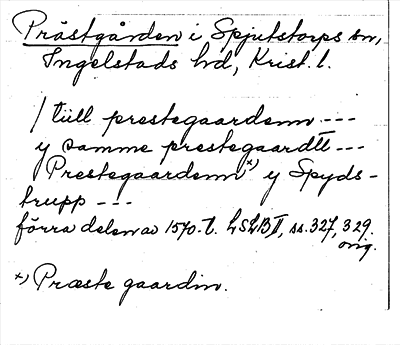 Prästgården i Spjutstorps sn,
Ingelstads hd, Krist. l.
/ tiill prestegaardenn ---
y samme prestegaardtt ---
Prestegaardenn x) y Spyds-
trupp ---
förra delen av 1570-t. LSLB II, ss. 327, 329.
orig.
x) Præste gaardin.